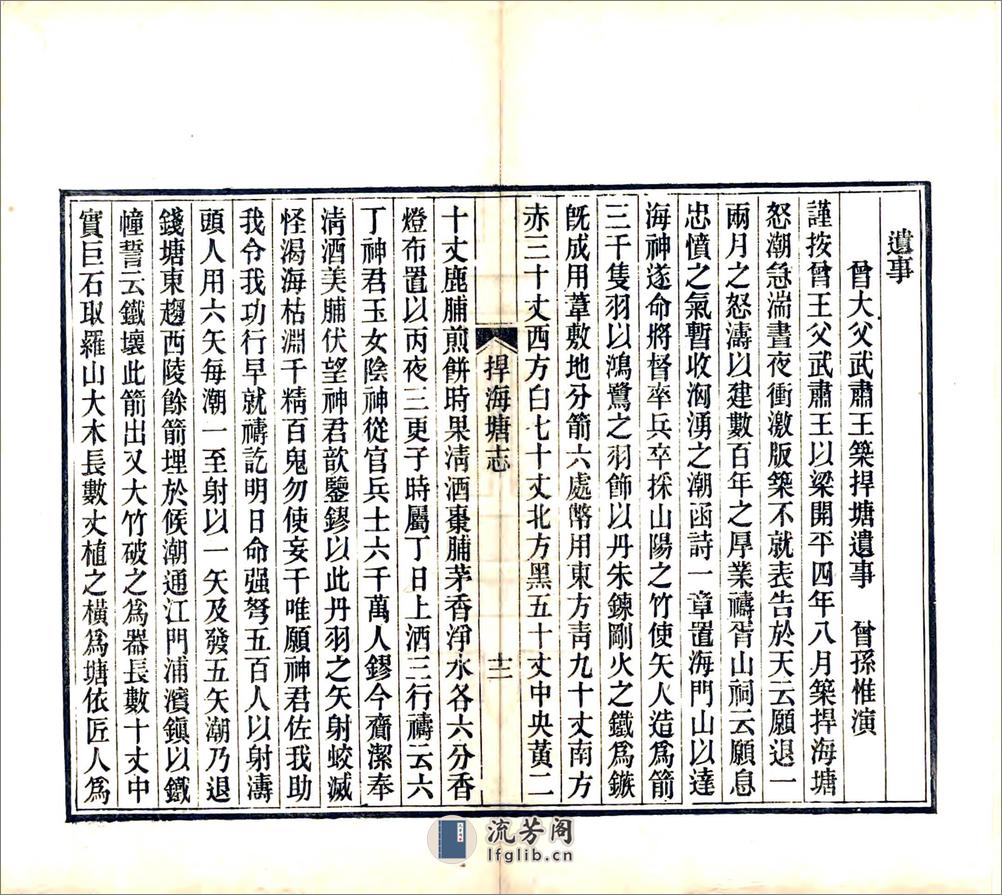 遺事
曾大父武肅王築捍塘遺事　曾孫惟演
謹按曾王父武肅王以梁開平四年八月築捍海塘
怒潮急湍晝夜衝激版築不就表告於天云願退一
兩月之怒濤以建數百年之厚業禱胥山祠云願息
忠憤之氣暫收洶湧之潮函詩一章置海門山以達
海神遂命將督率兵卒採山陽之竹使矢人造為箭
三千隻羽以鴻鷺之羽飾以丹朱鍊剛火之鐵為鏃
旣成用葦敷地分箭六處幣用東方靑九十丈南方
赤三十丈西方白七十丈北方黑五十丈中央黃二
捍海塘志
十二
十丈鹿脯煎餅時果淸酒棗脯茅香淨水各六分香
燈布置以丙夜三更子時屬丁日上酒三行禱云六
丁神君玉女陰神從官兵士六千萬人鏐今齋潔奉
淸酒美脯伏望神君歆鑒鏐以此丹羽之矢射蛟滅
怪渴海枯淵千精百鬼勿使妄干唯願神君佐我助
我令我功行早就禱訖明日命强弩五百人以射濤
頭人用六矢每潮一至射以一矢及發五矢潮乃退
錢塘東趨西陵餘箭埋於候潮通江門浦濱鎭以鐵
幢誓云鐵壞此箭出又大竹破之為器長數十丈中
實巨石取羅山大木長數丈植之橫為塘依匠人為
流芳阁
lfglib.cn